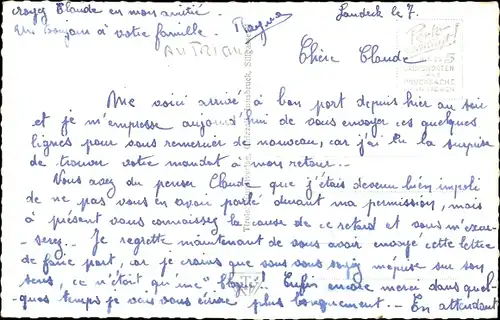 croyez Claude en mon amitié.
Un bonjour à votre famille.
AUTRICHE
Landeck le 7.
Chère Claude
Me voici arrivé à bon port depuis hier au soir
et je m'empresse aujourd'hui de vous envoyer ces quelques
lignes pour vous remercier de nouveau, car j'ai eu la surprise
de trouver votre mandat à mon retour...
Vous avez du penser Claude que j'étais devenu bien impoli
de ne pas vous en avoir parlé durant ma permission, mais
à présent vous connaissez la cause de ce retard et vous m'excu-
serez.. Je regrette maintenant de vous avoir envoyé cette lettre
de faire part, car je crains que vous vous soyez méprise sur son
sens, ce n'était qu'une "blague". Enfin encore merci dans quel-
ques temps je vais vous écrire plus longuement.- En attendant